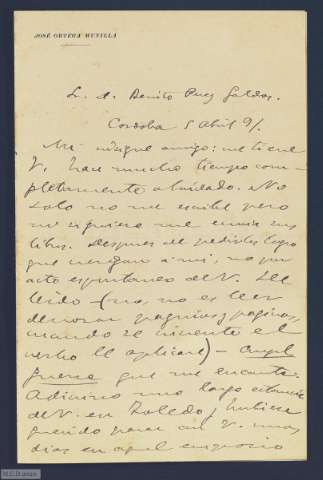 JOSÉ ORTEGA MUNILLA
S. D. Benito Perez Galdos.
Cordoba 5 Abril 91.
Mi insigne amigo: me tiene
V. hace mucho tiempo com-
pletamente olvidado. No
solo no me escribe pero
ni siquiera me envia sus
libros. Despues de pedirlos logro
que vengan á mi, no por
acto espontaneo de V. He
leido — (no, no es leer
devorar paginas y paginas,
cuando se invente el
verbo lo aplicaré) — Angel
Guerra que me encanta.
Adivino una larga estancia
de V. en Toledo y hubiera
querido pasar con V. unos
dias en aquel emporio